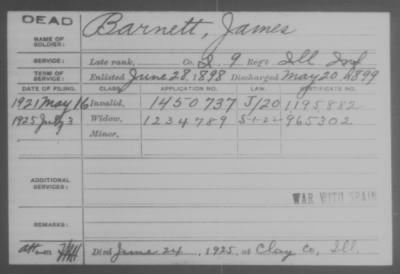 DEAD
NAME OF SOLDIER: Barnett, James
SERVICE: Late rank, Co. L, 9 Reg't Ill Inf
TERM OF SERVICE: Enlisted June 28, 1898 Discharged May 20, 1899
DATE OF FILING. CLASS. APPLICATION NO. LAW. CERTIFICATE NO.
1921 May 16 Invalid, 1450737 J/20 1195882
1925 July 3 Widow, 1234789 5-1-22 965302
Minor,
ADDITIONAL SERVICES:
WAR WITH SPAIN
REMARKS:
Died June 24, 1925, at Clay Co, Ill.